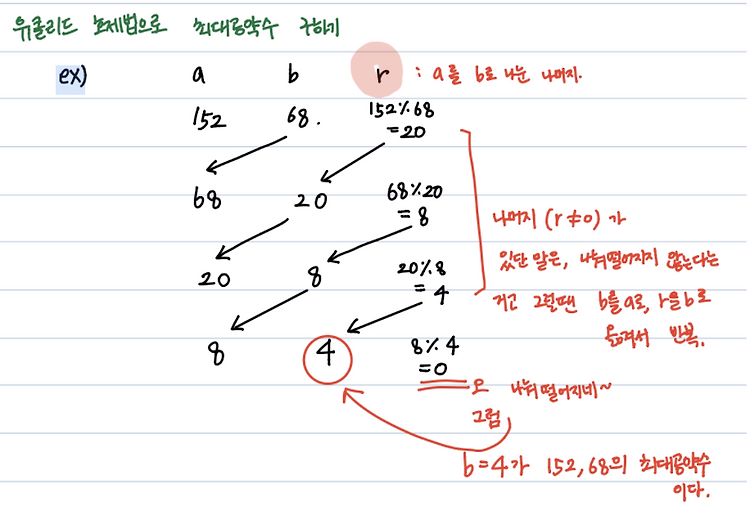 유클리드 호제법으로 최대공약수 구하기
ex) a b r : a를 b로 나눈 나머지.
152 68. 152%68
=20
68 20 68%20
= 8
나머지 (r≠0) 가
있단 말은, 나눠떨어지지 않는다는
거고 그럴땐 b를 a로, r을 b로
옮겨서 반복.
20 8 20%8
= 4
8 4 8%4
=0
오 나눠떨어지네~
그럼
b=4가 152,68의 최대공약수
이다.